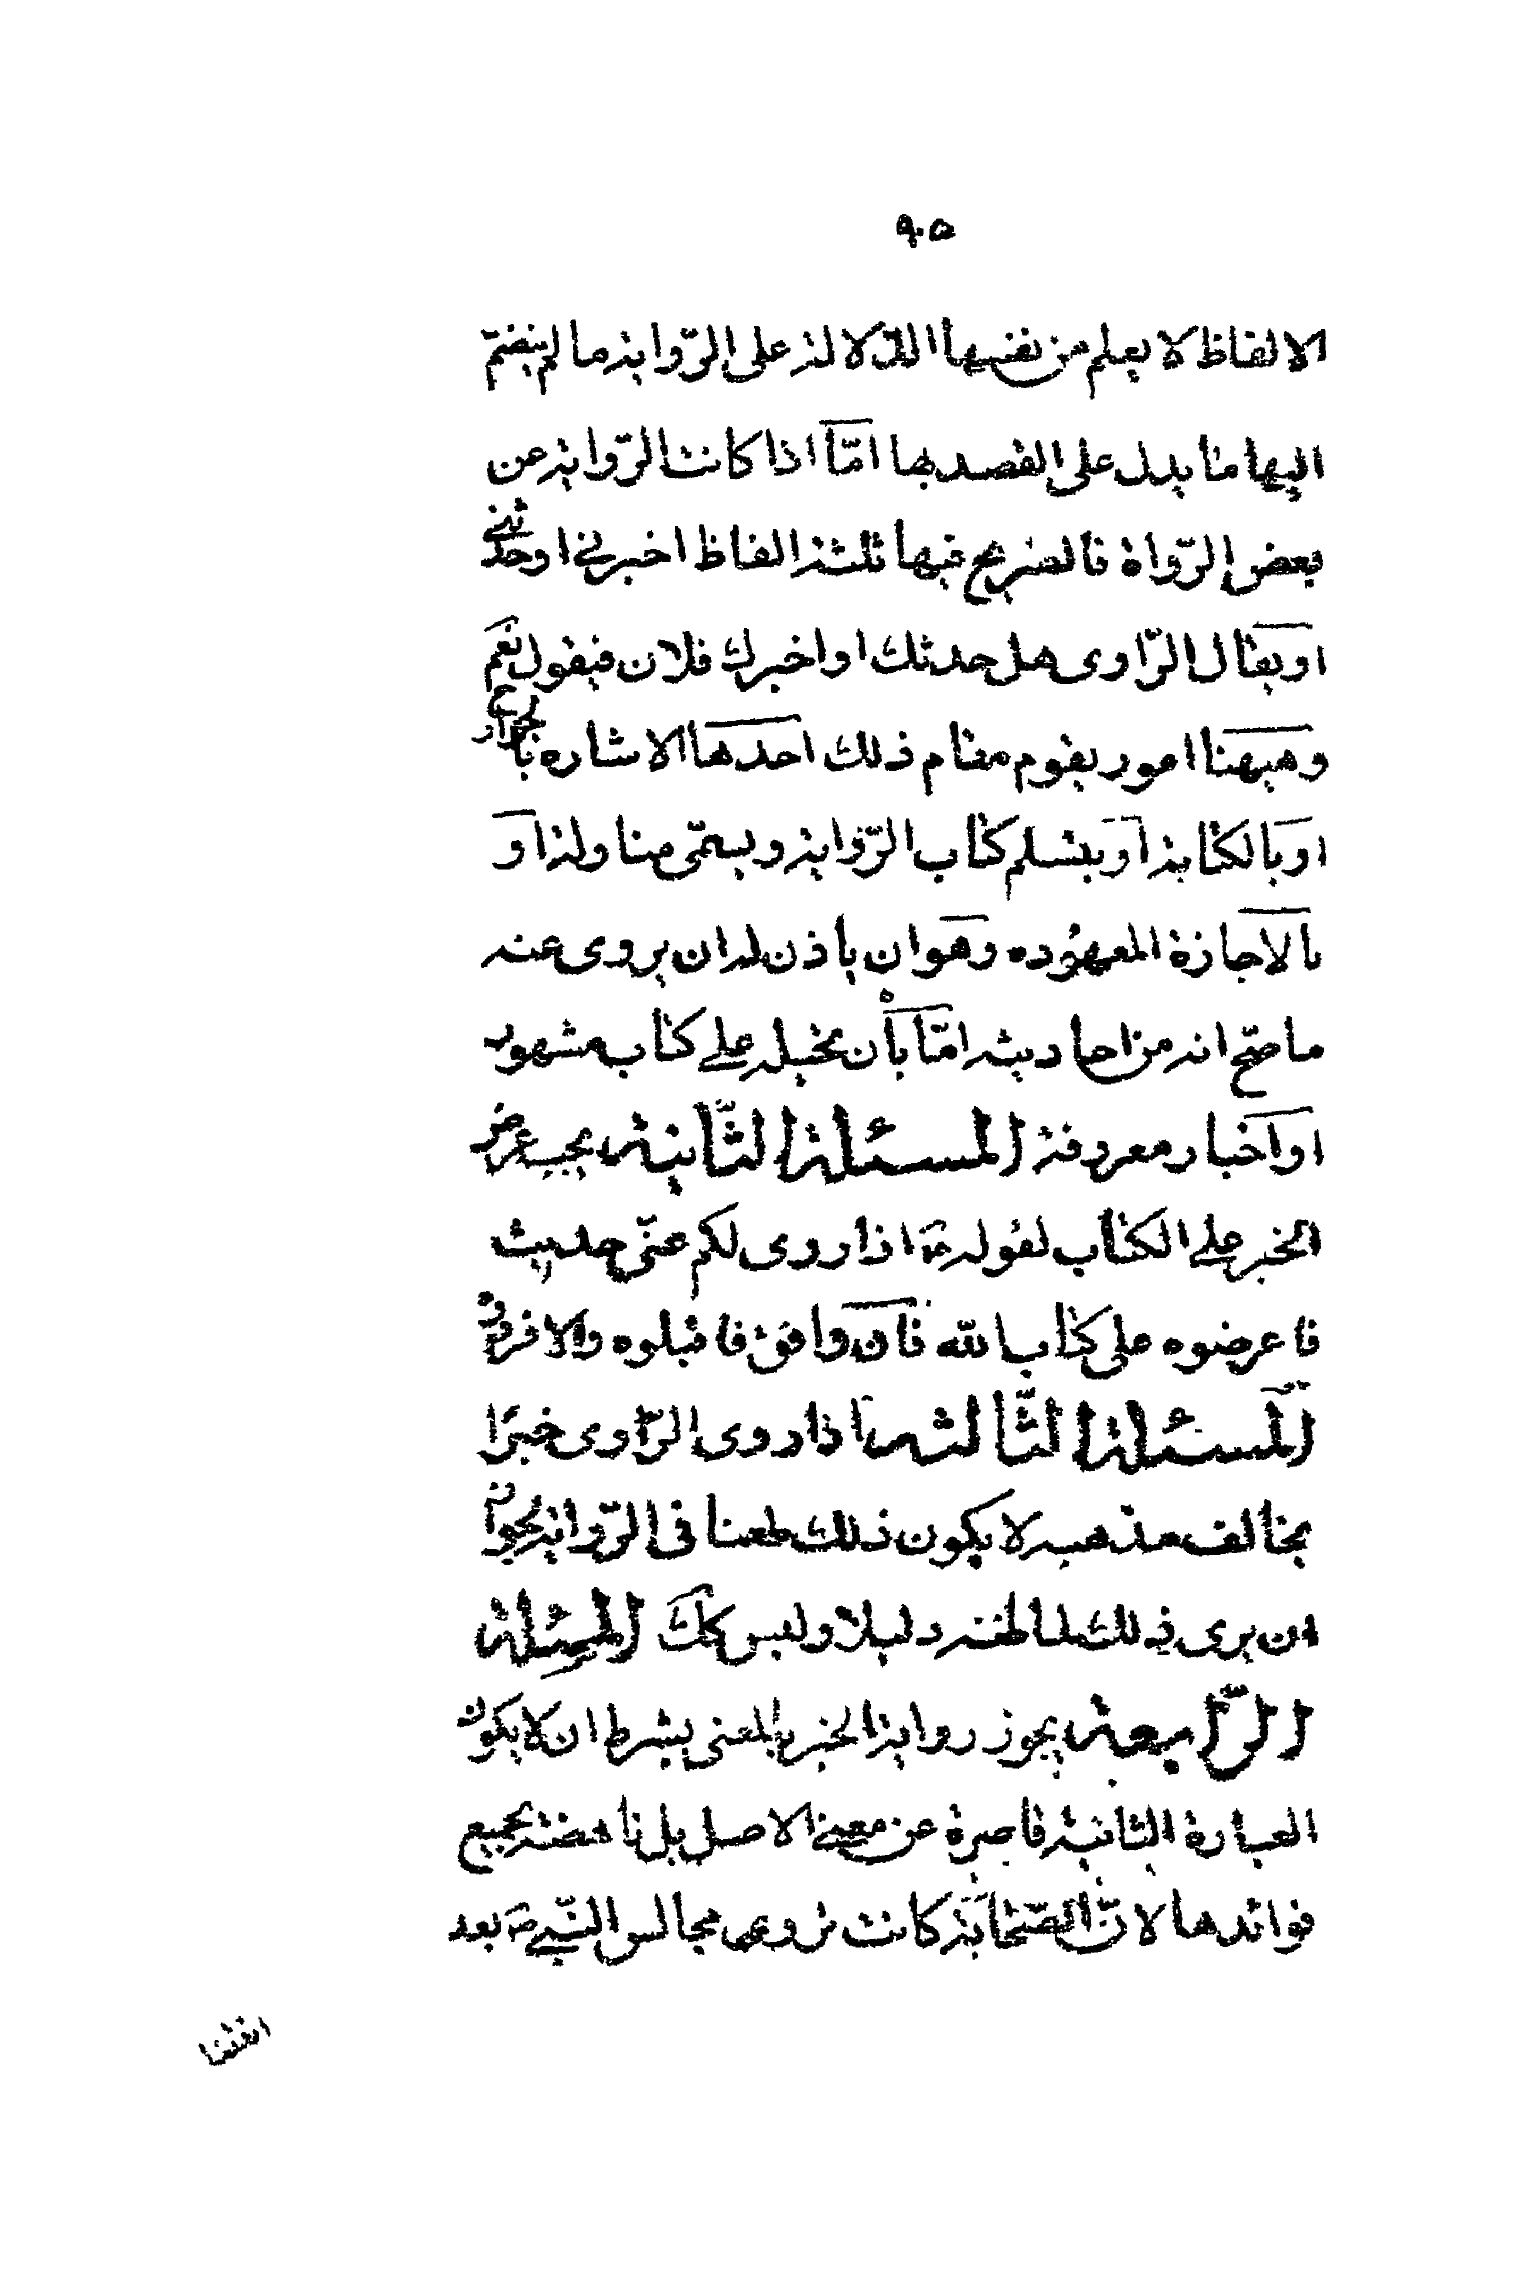 ٩٠٥
الالفاظ لا يعلم من نفسها الدّلالة على الرّواية ما لم ينضمّ
اليها ما يدل على القصد بها امّا اذا كانت الرّواية عن
بعض الرّواة فالصّريح فيها ثلثة الفاظ اخبرني او حدثني
او يقال الرّاوى هل حدثك او اخبرك فلان فيقول نعم
وهيهنا امور يقوم مقام ذلك احدها الاشاره بالجوارح
او بالكتابة او بتسلم كتاب الرّواية ويسمّى مناولة او
بالاجازة المعهوده وهو ان يأذن له ان يروى عنه
ما صحّ انه من احاديثه امّا بأن يحيله على كتاب مشهور
او اخبار معروفة المسئلة الثّانية يجب عرض
الخبر على الكتاب لقوله ع اذا روى لكم عنّى حديث
فاعرضوه على كتاب الله فان وافق فاقبلوه والا فردوه
المسئلة الثّالثة اذا روى الرّاوى خبرًا
يخالف مذهبه لا يكون ذلك طعنا فى الرّواية لجواز
ان يرى ذلك لما ظنه دليلا وليس كك المسئلة
الرّابعة يجوز رواية الخبر بالمعنى بشرط ان لا يكون
العبارة الثانية قاصرة عن معنى الاصل بل ناهضة بجميع
فوائدها لانّ الصّحابة كانت تروى مجالس النّبي ص بعد